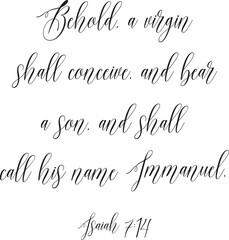 Behold, a virgin
shall conceive, and bear
a son, and shall
call his name Immanuel.
Isaiah 7:14